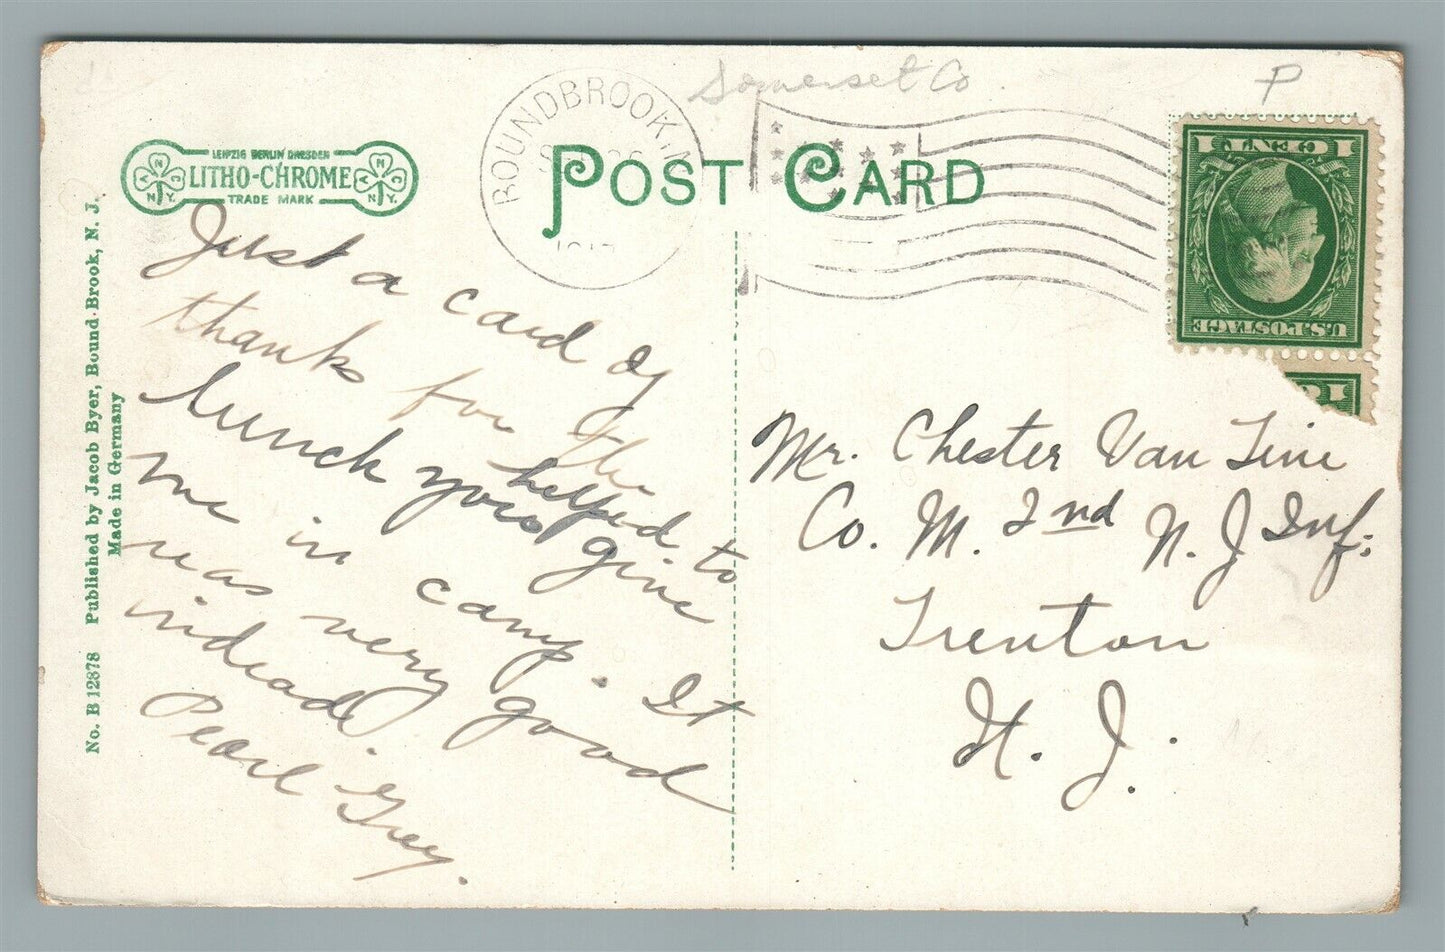 Somerset Co.
P
BOUNDBROOK, N.
1917
POST CARD
LEIPZIG BERLIN DRESDEN
LITHO-CHROME
TRADE MARK
N N
N Y.
N N
N Y.
1 CENT 1
U.S. POSTAGE
No. B 12878 Published by Jacob Byer, Bound-Brook, N. J.
Made in Germany
Just a card of
thanks for the
lunch you helped to
give
me in camp. It
was very good
indead.
Pearl Grey.
Mr. Chester Van Tine
Co. M. 2nd N. J Inf;
Trenton
N. J.